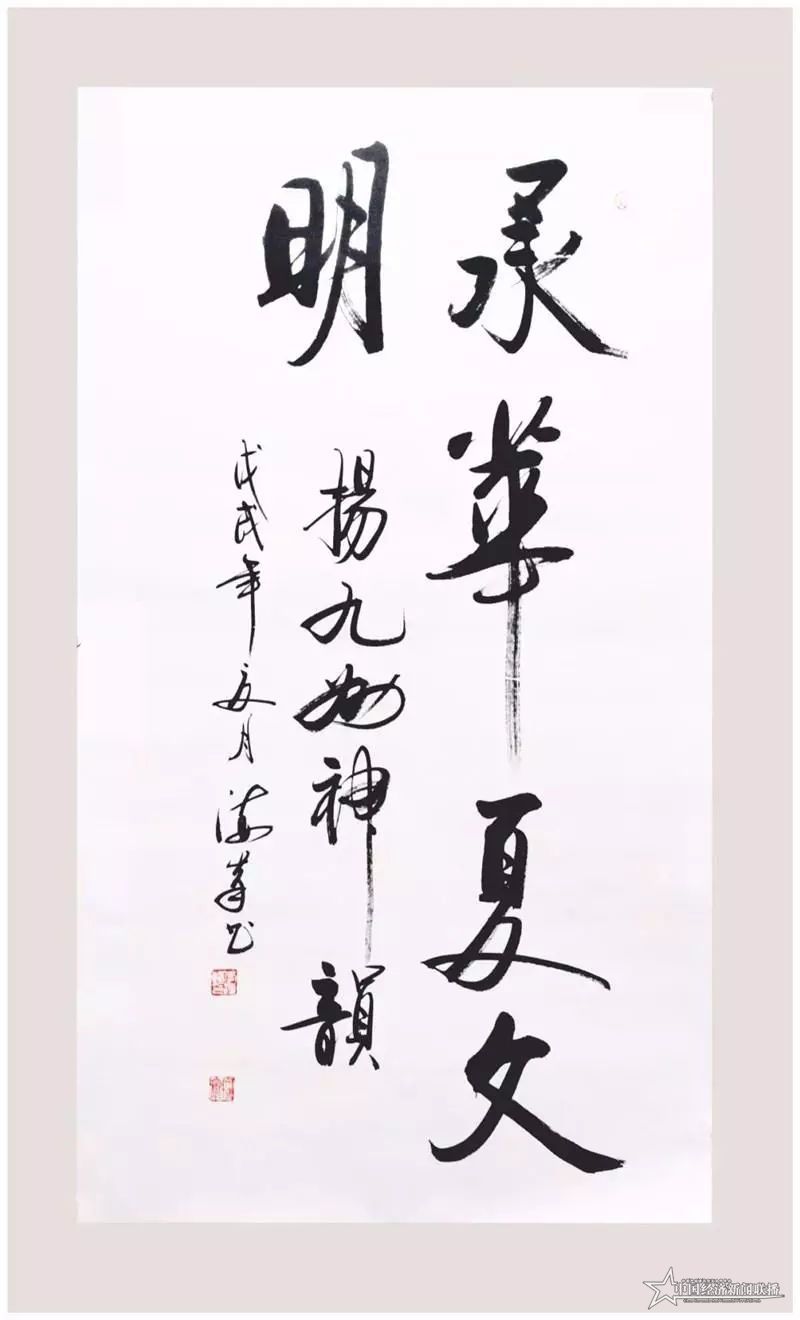 承華夏文
明
揚九州神韻
戊戌年夏月海峰书
中国经济新闻联播